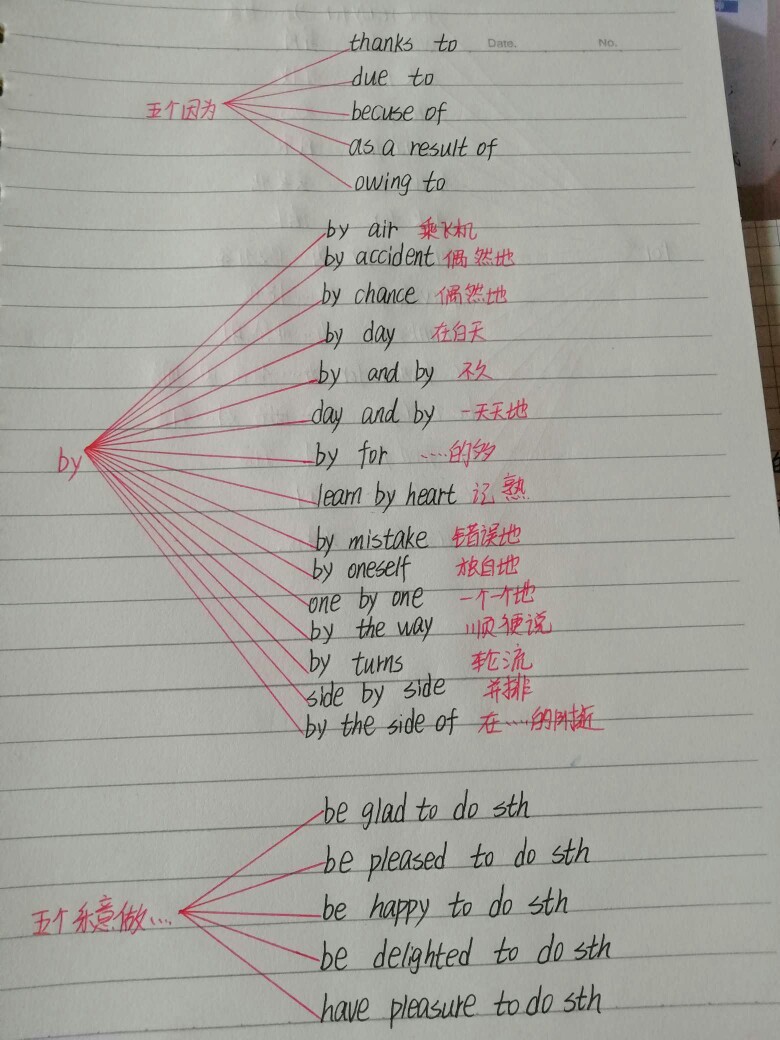 Date. No.
thanks to
due to
五个因为
becuse of
as a result of
owing to
by air 乘飞机
by accident 偶然地
by chance 偶然地
by day 在白天
by and by 不久
day and by 一天天地
by
by for .....的多
learn by heart 记熟
by mistake 错误地
by oneself 独自地
one by one 一个一个地
by the way 顺便说
by turns 轮流
side by side 并排
by the side of 在.....的附近
be glad to do sth
be pleased to do sth
五个乐意做....
be happy to do sth
be delighted to do sth
have pleasure to do sth